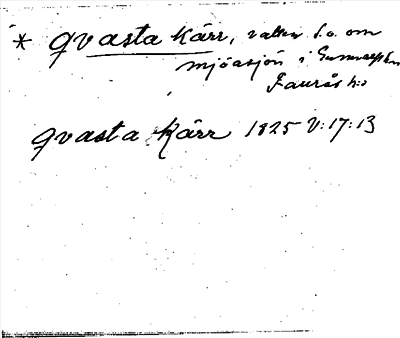 * qvasta kärr, vatten s.o. om
mjöasjön i
Faurås hd
qvasta kärr 1825 V:17:13